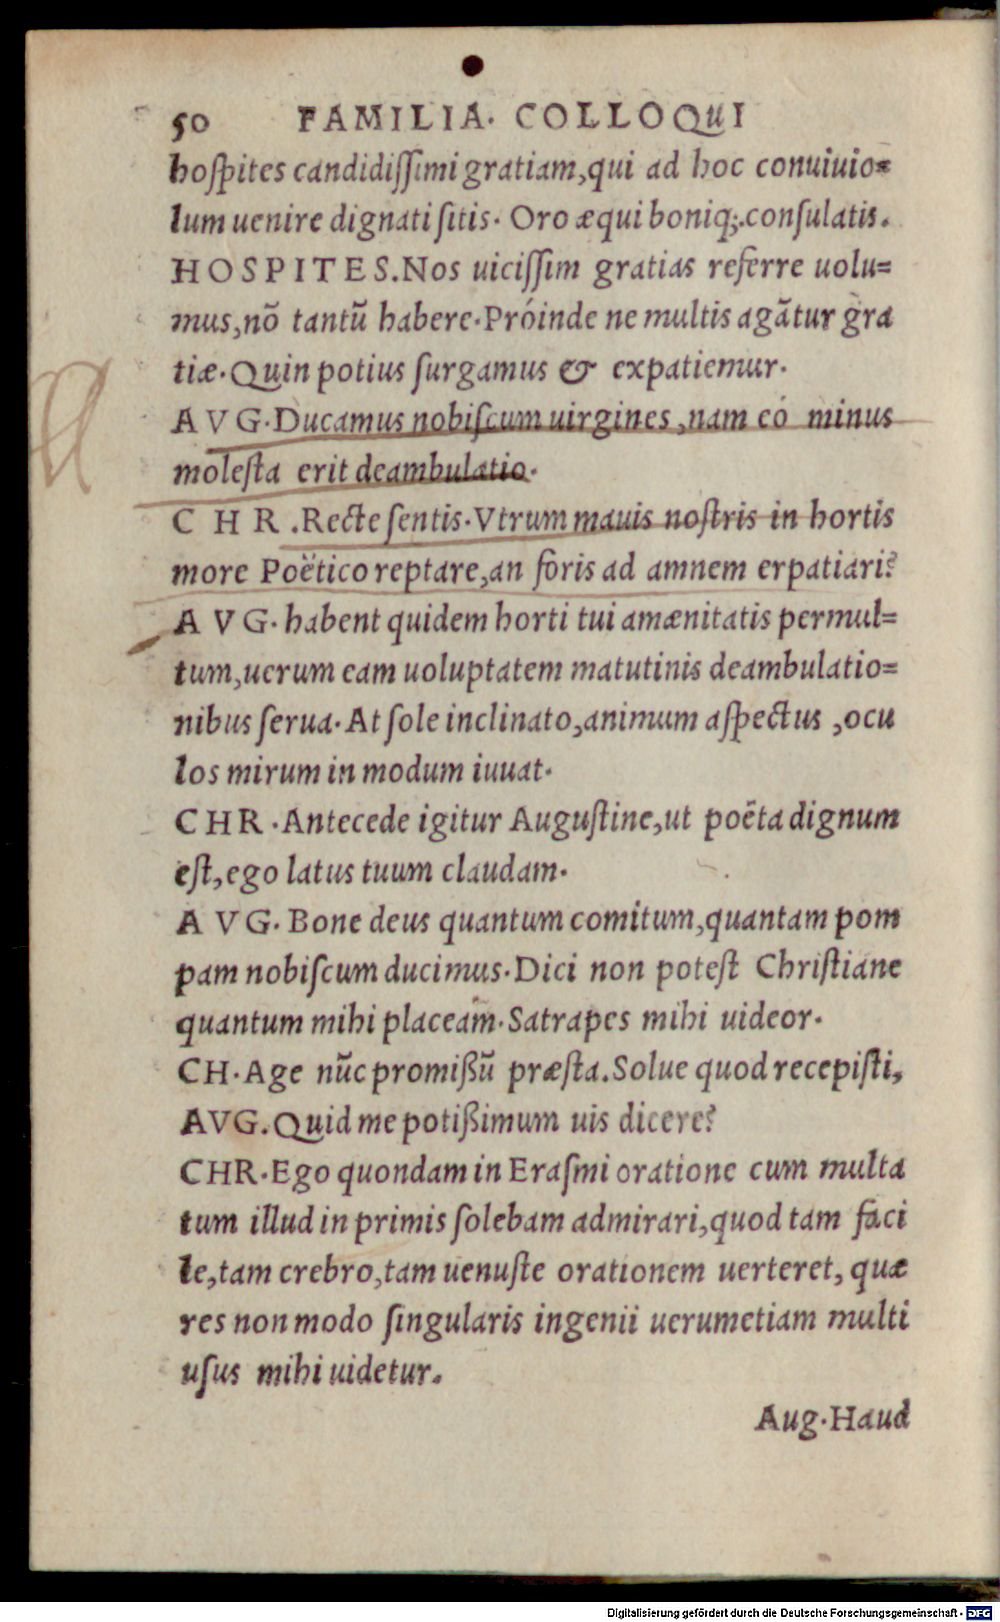 50 FAMILIA. COLLOQUI
hoſpites candidiſſimi gratiam,qui ad hoc conuiuio=
lum uenire dignati ſitis. Oro æqui boniq;.conſulatis.
HOSPITES.Nos uiciſſim gratias referre uolu=
mus,nō tantū habere.Próinde ne multis agātur gra
tiæ.Quin potius ſurgamus & expatiemur.
AVG.Ducamus nobiſcum uirgines,nam eó minus
moleſta erit deambulatio.
CHR.Recte ſentis.Vtrum mauis noſtris in hortis
more Poëtico reptare,an foris ad amnem erpatiari?
AVG.habent quidem horti tui amænitatis permul=
tum,uerum eam uoluptatem matutinis deambulatio=
nibus ſerua.At ſole inclinato,animum aſpectus ,ocu
los mirum in modum iuuat.
CHR.Antecede igitur Auguſtine,ut poëta dignum
eſt,ego latus tuum claudam.
AVG.Bone deus quantum comitum,quantam pom
pam nobiſcum ducimus.Dici non poteſt Chriſtiane
quantum mihi placeam.Satrapes mihi uideor.
CH.Age nūc promißū præſta.Solue quod recepiſti,
AVG.Quid me potißimum uis dicere?
CHR.Ego quondam in Eraſmi oratione cum multa
tum illud in primis ſolebam admirari,quod tam faci
le,tam crebro,tam uenuſte orationem uerteret, quæ
res non modo ſingularis ingenii uerumetiam multi
uſus mihi uidetur.
Aug.Haud
Digitalisierung gefördert durch die Deutsche Forschungsgemeinschaft - DFG